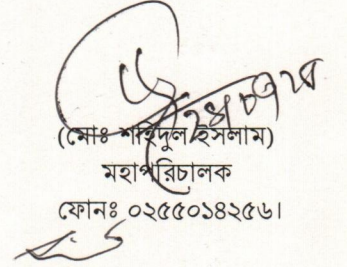 (মোঃ শহিদুল ইসলাম)
মহাপরিচালক
ফোনঃ ০২৫৫০১৪২৫৬।